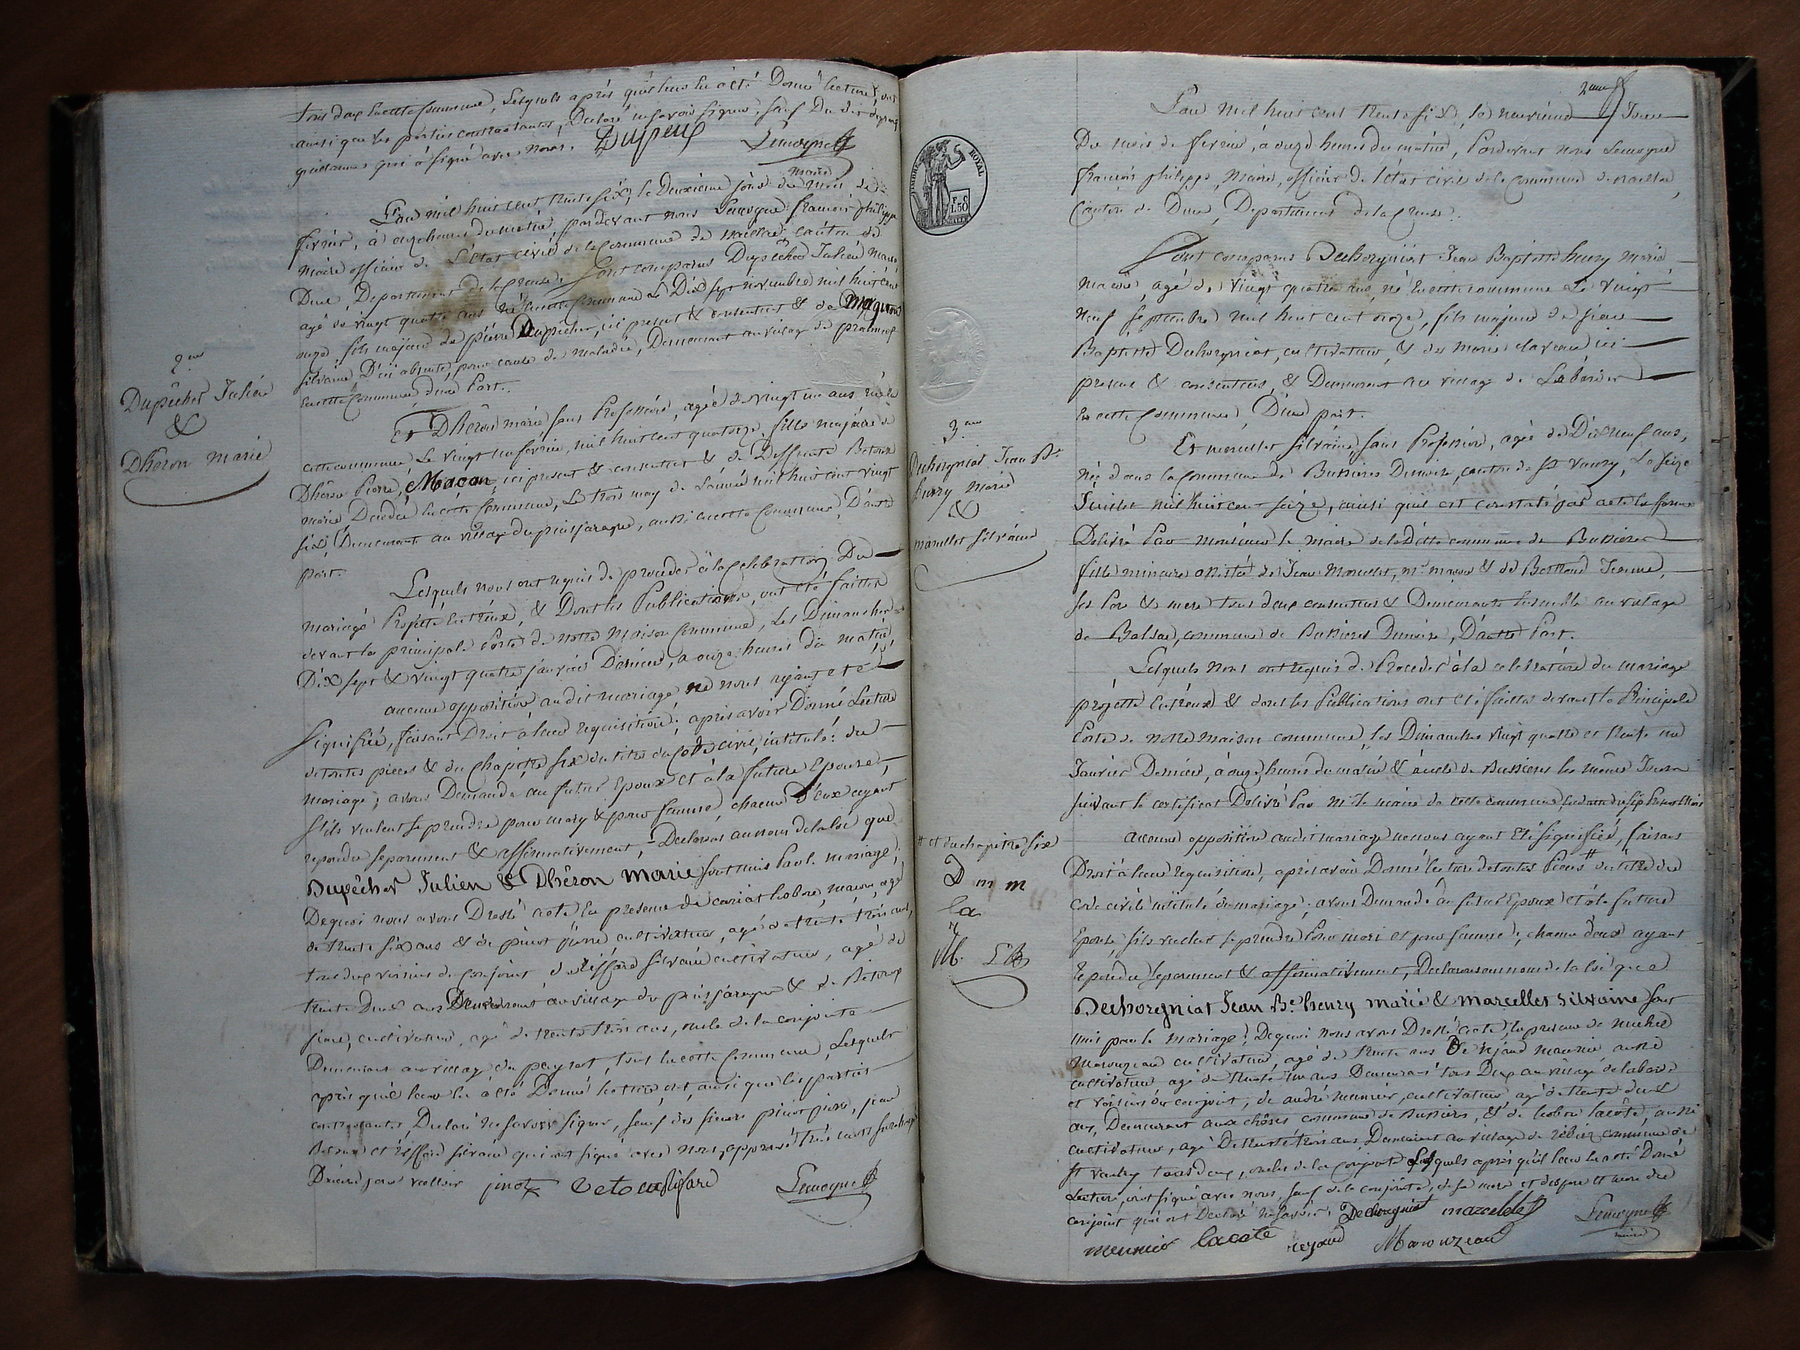 tous deux de cette commune, Lesquels après qu'il leur en a été Donné lecture, ont
ainsi que les parties contractantes, Déclaré ne savoir signer, sauf Du dit
guillaume qui a signé avec nous.
Lemoyne
maire
L'an mil huit cent trente six, le Deuxième jour du mois de
février, à onze heures du matin, pardevant nous Lemoyne françois philippe
maire officier de L'état civil de la Commune de naillat canton de
Dun, Département de la Creuse. Sont comparus Dupêcher Julien maçon
agé de vingt quatre ans né en cette commune Le Dix sept novembre mil huit cent
onze, fils majeur de pierre Dupêcher, ici présent & consentant & de
silvaine absente pour cause de maladie, Demeurant au village de
en cette Commune d'une Part.
2.me
Dupêcher Julien
&
Dhéron marie
Et Dhéron marie sans Profession, agée de vingt un ans née en
cette commune, Le vingt un février, mil huit cent quatorze, fille majeure de
Dhéron Pierre, Maçon, ici présent & consentant & de
marie, Décédée en cette Commune, Le trois may de L'année mil huit cent vingt
six, Demeurant au village du puisfaragou, aussi en cette Commune, D'autre
Part.
Lesquels nous ont requis de procéder à la Célébration Du
mariage Projetté entr'eux, & Dont les Publications, ont été faittes
devant la principale Porte de notre Maison Commune, Les Dimanches
Dix sept & vingt quatre janvier Dernier, à onze heures du matin,
aucune opposition audit mariage ne nous ayant été
signifiée, faisant Droit à leur requisition, après avoir Donné Lecture
de toutes pièces & du chapitre six du titre du Code civil, intitulé: du
mariage; avons Demandé au futur Epoux et à la future Epouse,
s'ils veulent se prendre pour mary & pour femme, chacun d'Eux ayant
repondu séparément & affirmativement, Déclarons au nom de la loi que
Dupêcher Julien & Dhéron Marie sont unis Par le mariage;
De quoi nous avons Dressé acte En presence de cariat Léobon, maçon, agé
de trente six ans & de pinot pierre cultivateur, agé de trente trois ans,
tous deux voisins du conjoint d'eliffard silvain cultivateur, agé de
trente Deux ans Demeurant au village du puisfaragou & de
pierre, cultivateur, agé de trente trois ans, oncle de la conjointe
Demeurant au village du peyrat, tous en cette Commune, Lesquels
après qu'il leur en a été Donné lecture, ont, ainsi que les parties
contractantes Déclaré ne savoir signer, sauf des sieurs pinot pierre,
et eliffard silvain qui ont signé avec nous,
pinot Lemoyne
neuf
L'an mil huit cent trente six, le neuvième Jour
Du mois de février, à onze heures du matin, Pardevant nous Lemoyne
françois philippe, maire, officier de l'état civil de la Commune de naillat,
Canton de Dun, Département de la Creuse.
Sont comparus Dechorgniat Jean Baptiste henry marie
maçon agé de vingt quatre ans, né en cette commune Le vingt
neuf septembre mil huit cent onze, fils majeur de jean
Baptiste Dechorgniat, cultivateur, & de marie ici
present & consentans, & Demeurant au village de Laborde
en cette Commune, D'une part.
ROYAL
1f.50
3.me
Dechorgniat Jean Bte
henry Marie
&
marcellet silvaine
Et marcellet silvaine, sans Profession, agée de Dix neuf ans,
née dans la Commune de Bussière Dunoise, canton de St vaury, Le seize
Juillet mil huit cent seize, ainsi qu'il est constaté par acte en forme
Délivré Par Monsieur le maire de la Ditte commune de Bussière
fille mineure de Jean Marcellet, me maçon & de Bertrand Jeanne,
ses Père & mere tous deux consentans & Demeurants Ensemble au village
de Balsac, commune de Bussière Dunoise, D'autre Part.
Lesquels Nous ont requis de Procéder à la célébration du mariage
projetté entr'eux & dont les Publications ont été faittes devant la Principale
Porte de notre maison commune, les Dimanches vingt quatre et trente un
Janvier Dernier, à onze heures du matin & à celle de Bussière les mêmes Jours
suivant le certificat Délivré Par Mr le maire de cette commune
aucune opposition audit mariage ne nous ayant Eté signifiée, faisant
Droit à leur requisition, après avoir Donné lecture de toutes Pièces # du titre du
code civil intitulé du mariage; avons Demandé au futur Epoux et à la future
Epouse s'ils veulent se prendre Pour mari et pour femme; chacun d'eux ayant
repondu séparément & affirmativement, Déclarons au nom de la loi que
# et du chapitre six
D m m
la
M. LB
Dechorgniat Jean Bte henry marie & marcellet silvaine sont
unis par le mariage; De quoi nous avons Dressé acte, En presence de michel
Marouzeau cultivateur, agé de trente ans De rejaud maurice aussi
cultivateur agé de trente ans Demeurant tous Deux au village de laborde
et voisins du conjoint, de andré meunier, cultivateur, agé de trente deux
ans, Demeurant aux chôses commune de Bussière, & de Léobon Lacôte, aussi
cultivateur, agé De trente trois ans Demeurant au village de commune de
St vaulry tous deux, oncles de la conjointe Lesquels après qu'il leur en a été Donné
Lecture, ont signé avec nous, sauf de la conjointe, de sa mere et des pere et mere du
conjoint qui ont Declaré ne savoir, Dechorgniat marcellet Lemoyne
maire
meunier lacote rejaud Marouzeau